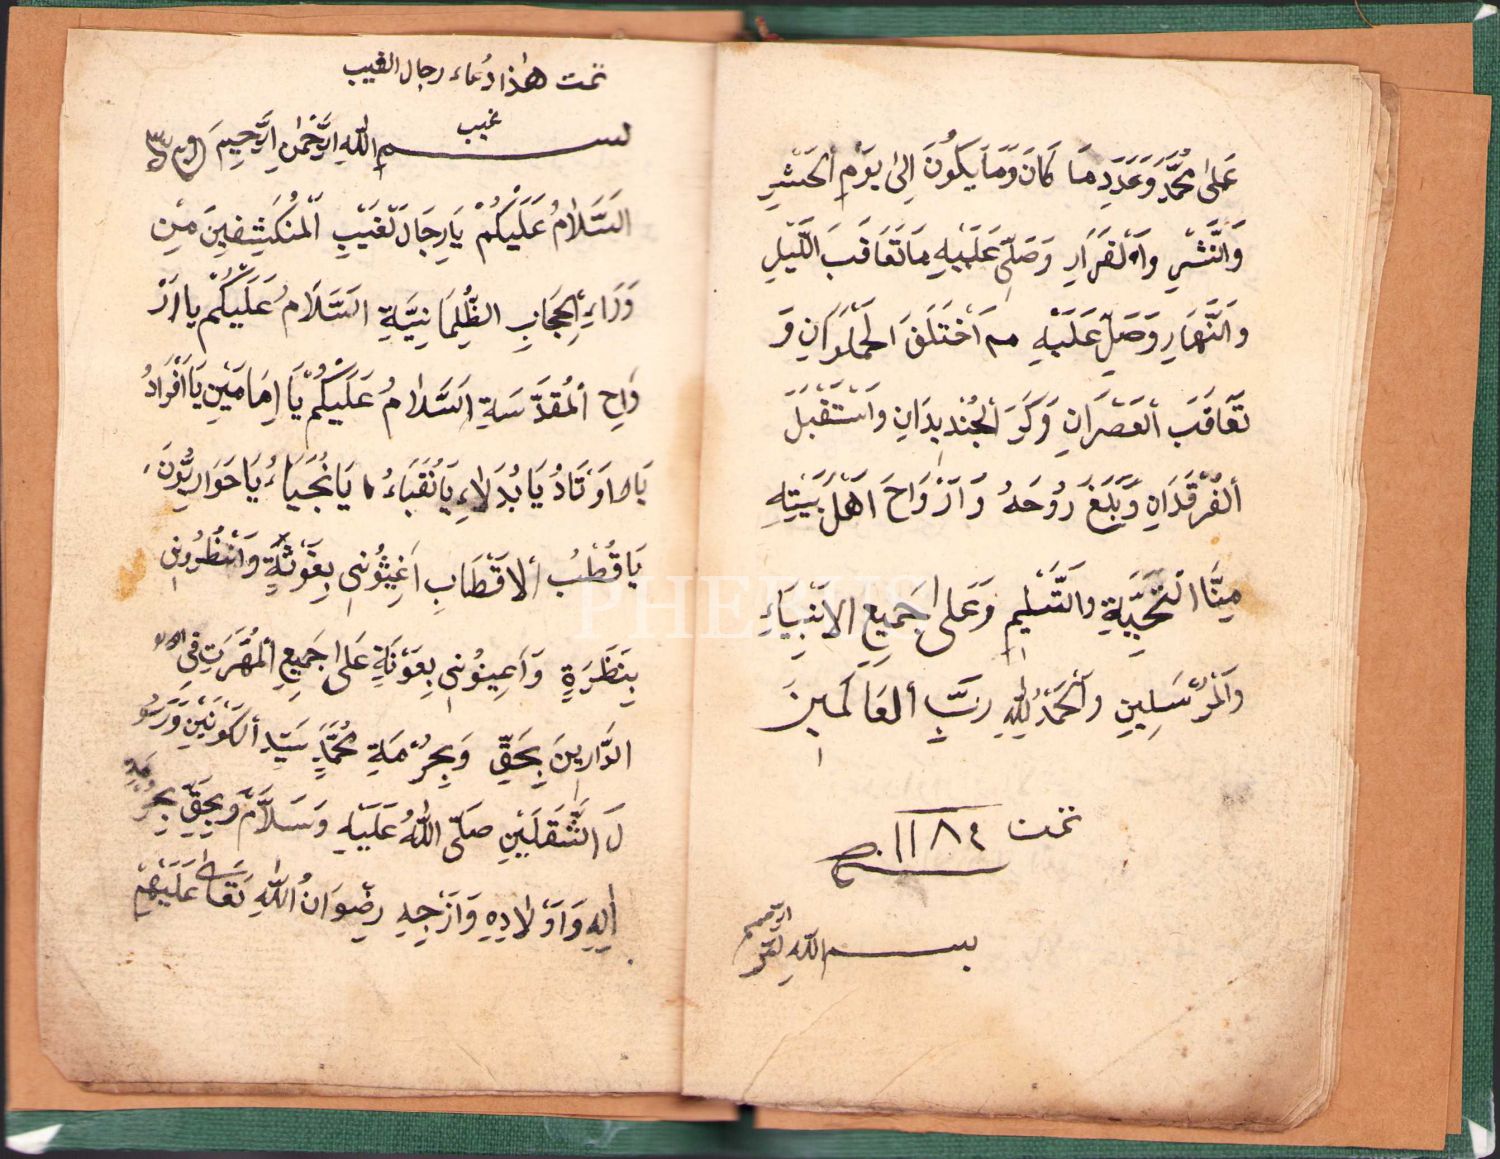 عَلىٰ مُحَمَّدٍ وَعَدَدِ مَا كَانَ وَمَا يَكُونُ اِلىٰ يَوْمِ الْحَشْرِ
وَالنَّشْرِ وَالْقَرَارِ وَصَلِّى عَلَيْهِ مَا تَعَاقَبَ اللَّيْلِ
وَالنَّهَارِ وَصَلِّ عَلَيْهِ مَاخْتَلَفَ الْمَلَوَانِ وَ
تَعَاقَبَ الْعَصْرَانِ وَكَرَّ الْجَدِيدَانِ وَاسْتَقْبَلَ
الْفَرْقَدَانِ وَبَلِّغْ رُوحَهُ وَاَرْوَاحَ اَهْلِ بَيْتِهِ
مِنَّا التَّحِيَّةِ وَالتَّسْلِيمِ وَعَلىٰ جَمِيعِ الْاَنْبِيَاءِ
وَالْمُرْسَلِينَ وَالْحَمْدُ لِلّٰهِ رَبِّ الْعَالَمِينَ
تمت ١١٨٤
بسم اللّٰهِ
تمت هٰذا دُعاء رجال الغيب
غيب
بسم اللّٰهِ الرَّحْمٰنِ الرَّحِيمِ
اَلسَّلَامُ عَلَيْكُمْ يَا رِجَالَ لْغَيْبِ الْمُنْكَشِفِينَ مِنْ
وَرَاءِ الْحِجَابِ الظُّلْمَانِيَّةِ السَّلَامُ عَلَيْكُمْ يا اَرْ
وَاحِ الْمُقَدَّسَةِ السَّلَامُ عَلَيْكُمْ يَا اِمَامَيْنِ يَا اَفْرَادُ
يَا اَوْتَادُ يَا بُدَلَاءِ يَا نُقَبَاءُ يَا نُجَبَاءُ يَا حَوَارِيُّونَ
يَا قُطْبُ الْاَقْطَابِ اَغِيثُونِى بِغَوْثَةٍ وَانْظُرُونِى
بِنَظْرَةٍ وَاَعِينُونِى بِعَوْنَةٍ عَلىٰ جَمِيعِ فى
الدَّارَيْنِ بِحَقِّ وَبِحُرْمَةِ مُحَمَّدٍ سَيِّدِ الْكَوْنَيْنِ وَرَسُو
لَ الثَّقَلَيْنِ صَلَّى اللّٰهُ عَلَيْهِ وَسَلَّمْ وَبِحَقِّ بِحُرْمَةِ
اٰلِهِ وَاَوْلَادِهِ وَاَزْجِهِ رِضْوَانُ اللّٰهِ تَعَالىٰ عَلَيْهِمْ
PHEBUS